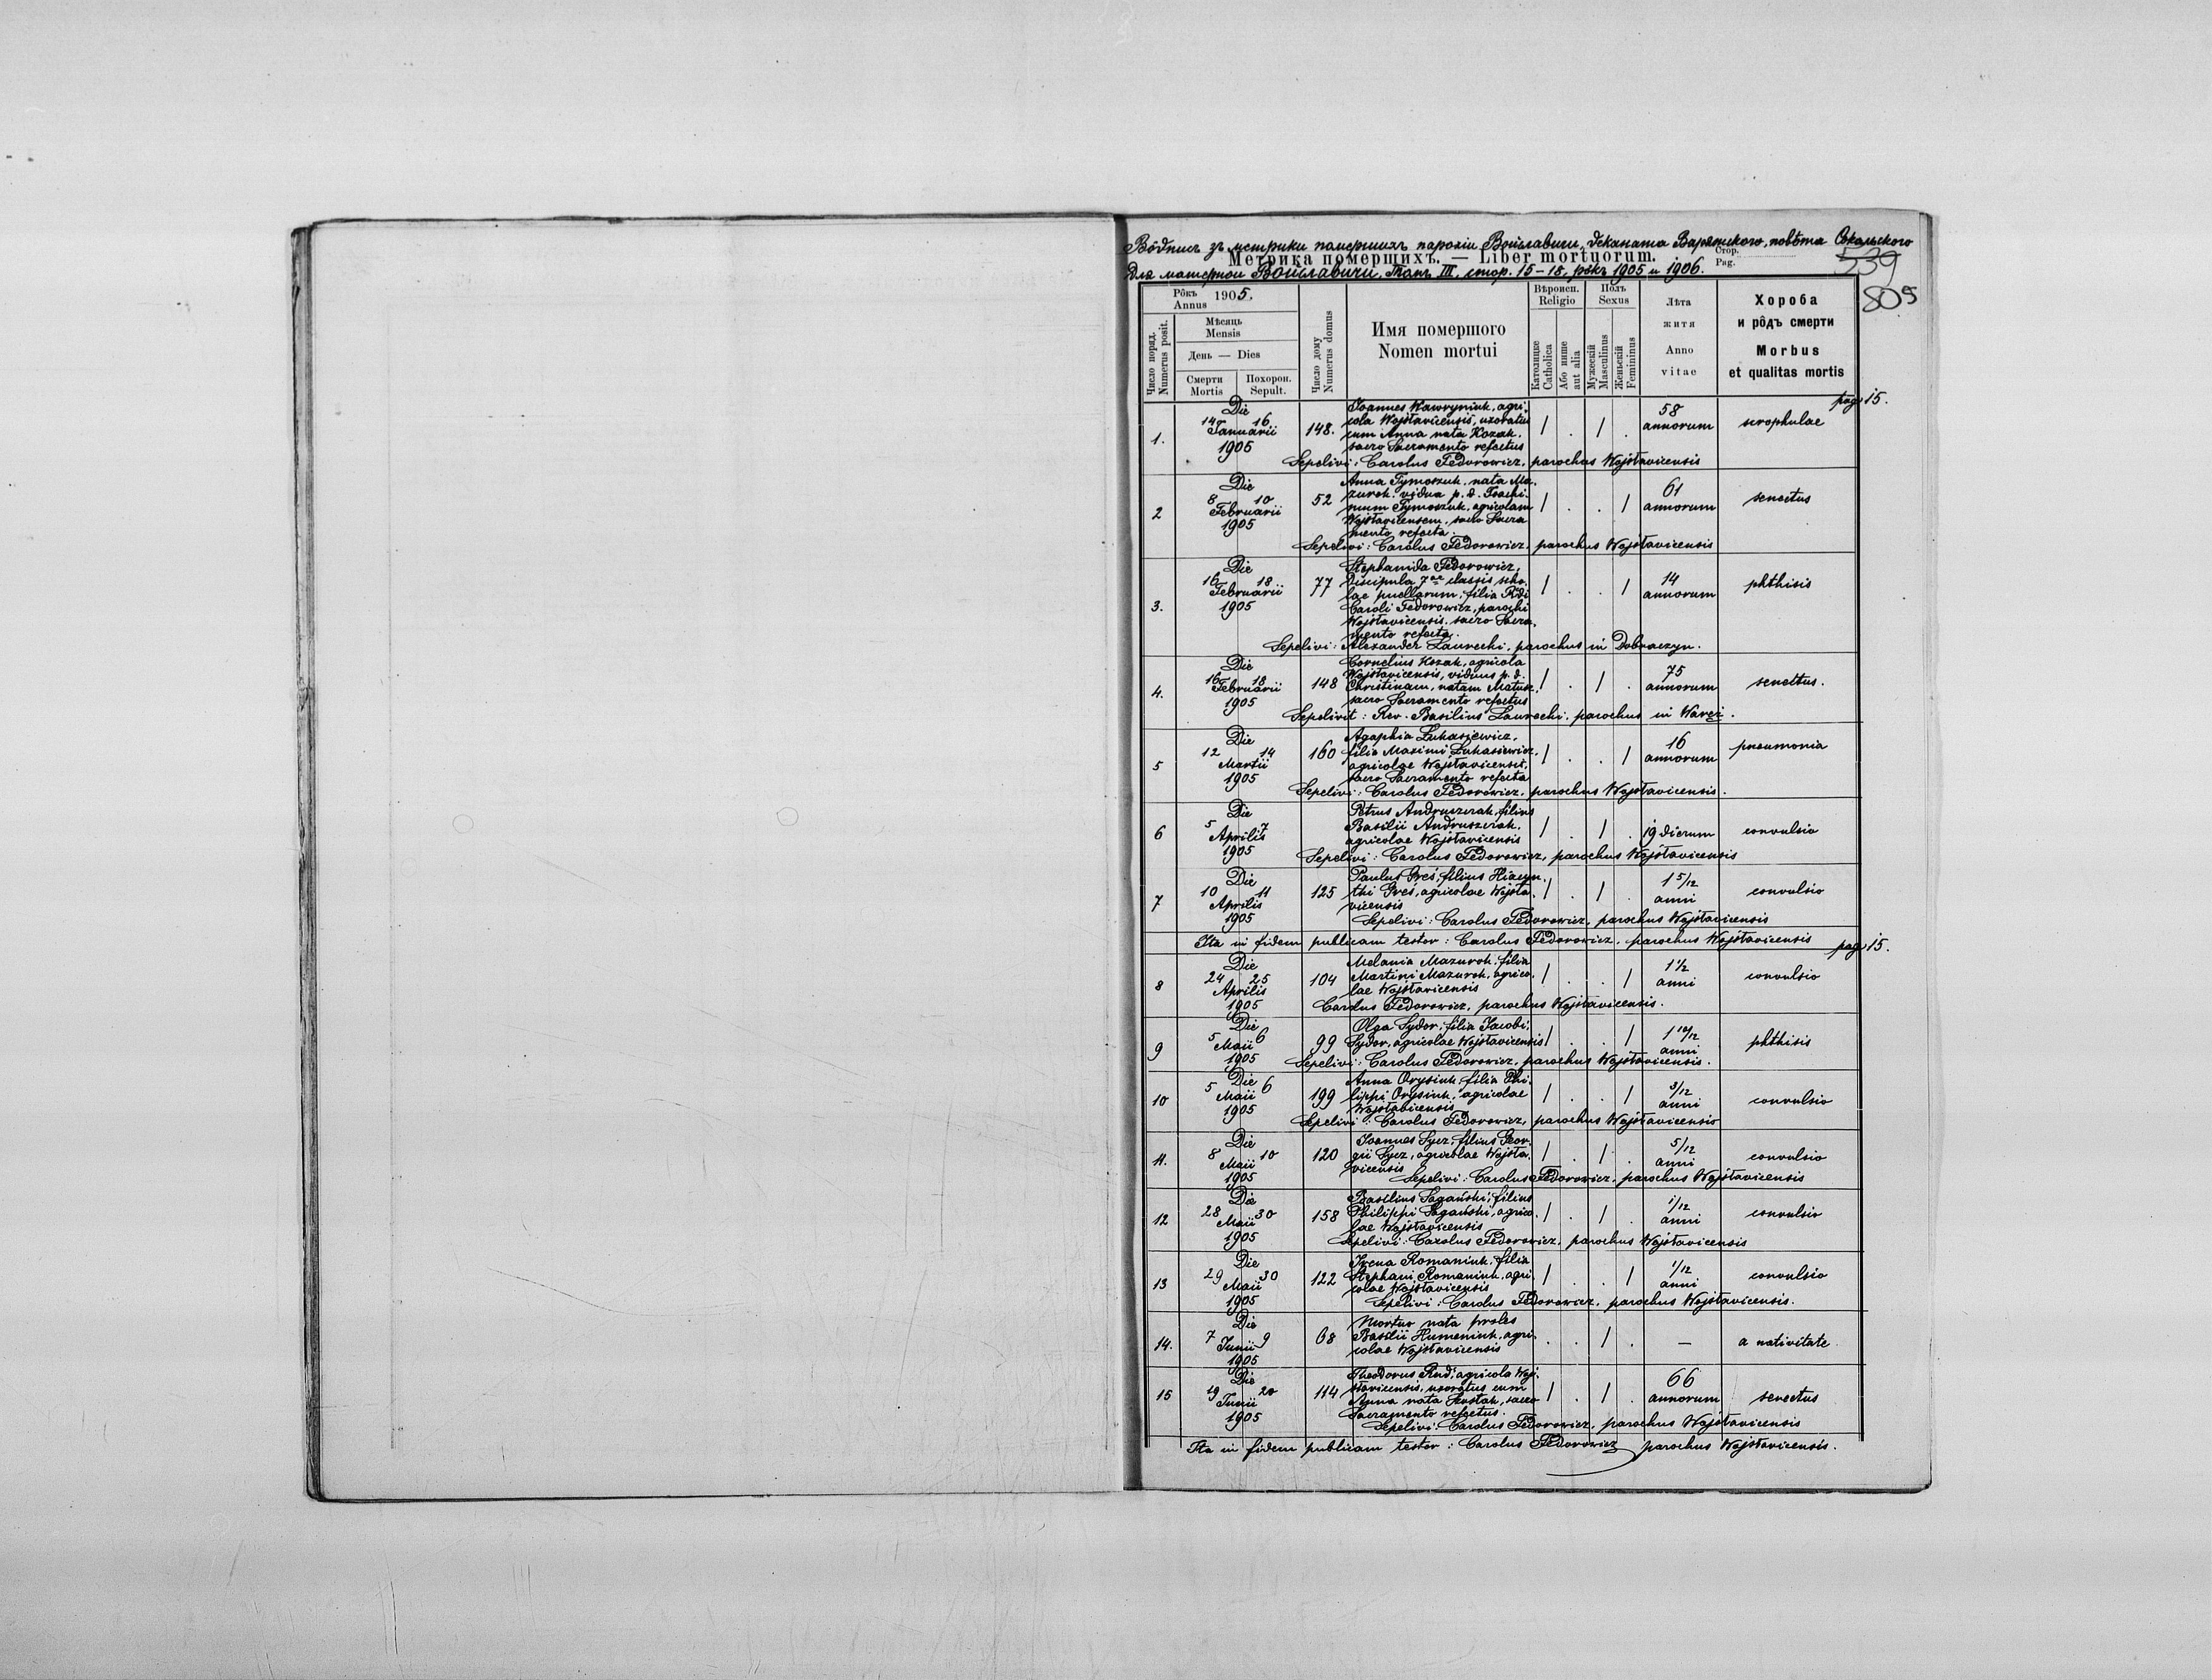 Вôдпись зъ метрики помершихъ парохіи Войславичи, деканата Варяжского, повѣта Сокальского
Метрика помершихъ. — Liber mortuorum.
Стор.
Pag.
539
для матерной Войславичи, Томъ III, стор. 15-18, рôкъ 1905 и 1906.
805
Рôкъ Annus 1905.
Число поряд.
Numerus posit.
Мѣсяць
Mensis
День — Dies
Смерти
Mortis
Похорон.
Sepult.
Число дому
Numerus domus
Имя помершого
Nomen mortui
Вѣроисп.
Religio
Католицке
Catholica
Або инше
aut alia
Полъ
Sexus
Мужескій
Masculinus
Женьскій
Femininus
Лѣта
житя
Anno
vitae
Хороба
и рôдъ смерти
Morbus
et qualitas mortis
pag 15.
1. Die 14 16 Januarii 1905 148. Joannes Wawryniuk, agri-
cola Wojsławicensis, uxoratus
cum Anna nata Kozak,
sacro Sacramento refectus
/ . / . 58 annorum scrophulae
Sepelivi: Carolus Fedorowicz, parochus Wojsławicensis
2 Die 8 10 Februarii 1905 52 Anna Tymoszuk, nata Ma-
zurok, vidua p. d. Joachi-
mum Tymoszuk, agricolam
Wojsławicensem, sacro Sacra
mento refecta.
/ . . / 61 annorum senectus
Sepelivi: Carolus Fedorowicz, parochus Wojsławicensis
3. Die 16 18 Februarii 1905 77 Stephanida Fedorowicz,
discipula 7ae classis scho-
lae puellarum, filia Rdi
Caroli Fedorowicz, parochi
Wojsławicensis, sacro Sacra-
mento refecta.
/ . . / 14 annorum phthisis
Sepelivi: Alexander Laurecki, parochus in Dobraczyn.
4. Die 16 18 Februarii 1905 148 Cornelius Kozak, agricola
Wojsławicensis, viduus p. d.
Christinam, natam Matusz,
sacro Sacramento refectus
/ . / . 75 annorum senectus.
Sepelivit: Rev. Basilius Laurecki, parochus in Waręż.
5 Die 12 14 Martii 1905 160 Agaphia Łukasiewicz,
filia Maximi Łukasiewicz,
agricolae Wojsławicensis,
sacro Sacramento refecta
/ . . / 16 annorum pneumonia
Sepelivi: Carolus Fedorowicz, parochus Wojsławicensis.
6 Die 5 7 Aprilis 1905 Petrus Andruszczak, filius
Basilii Andruszczak,
agricolae Wojsławicensis
/ . / . 19 dierum convulsio
Sepelivi: Carolus Fedorowicz, parochus Wojsławicensis
7 Die 10 11 Aprilis 1905 125 Paulus Greś, filius Hiacyn-
thi Greś, agricolae Wojsła-
vicensis
/ . / . 1 5/12 anni convulsio
Sepelivi: Carolus Fedorowicz, parochus Wojsławicensis
Ita in fidem publicam testor: Carolus Fedorowicz, parochus Wojsławicensis
pag 15.
8 Die 24 25 Aprilis 1905 104 Melania Mazurok, filia
Martini Mazurok, agrico-
lae Wojsławicensis
/ . . / 1 1/2 anni convulsio
Carolus Fedorowicz, parochus Wojsławicensis.
9 Die 5 6 Maii 1905 99 Olga Sydor, filia Jacobi
Sydor, agricolae Wojsławicensis
/ . . / 1 10/12 anni phthisis
Sepelivi: Carolus Fedorowicz, parochus Wojsławicensis.
10 Die 5 6 Maii 1905 199 Anna Orysiuk, filia Phi-
lippi Orysiuk, agricolae
Wojsławicensis
/ . . / 3/12 anni convulsio
Sepelivi: Carolus Fedorowicz, parochus Wojsławicensis
11. Die 8 10 Maii 1905 120 Joannes Sycz, filius Geor-
gii Sycz, agricolae Wojsła-
vicensis
/ . / . 5/12 anni convulsio
Sepelivi: Carolus Fedorowicz, parochus Wojsławicensis
12 Die 28 30 Maii 1905 158 Basilius Sagański, filius
Philippi Sagański, agrico-
lae Wojsławicensis
/ . / . 1/12 anni convulsio
Sepelivi: Carolus Fedorowicz, parochus Wojsławicensis
13 Die 29 30 Maii 1905 122 Irena Romaniuk, filia
Stephani Romaniuk, agri-
colae Wojsławicensis
/ . . / 1/12 anni convulsio
Sepelivi: Carolus Fedorowicz, parochus Wojsławicensis.
14. Die 7 9 Junii 1905 68 Mortuo nata proles
Basilii Humeniuk, agri-
colae Wojsławicensis
. . / . — a nativitate
15 Die 19 20 Junii 1905 114 Theodorus Rud, agricola Woj-
sławicensis, uxoratus cum
Anna nata Szostak, sacro
Sacramento refectus.
/ . / . 66 annorum senectus
Sepelivi: Carolus Fedorowicz, parochus Wojsławicensis
Ita in fidem publicam testor: Carolus Fedorowicz parochus Wojsławicensis.